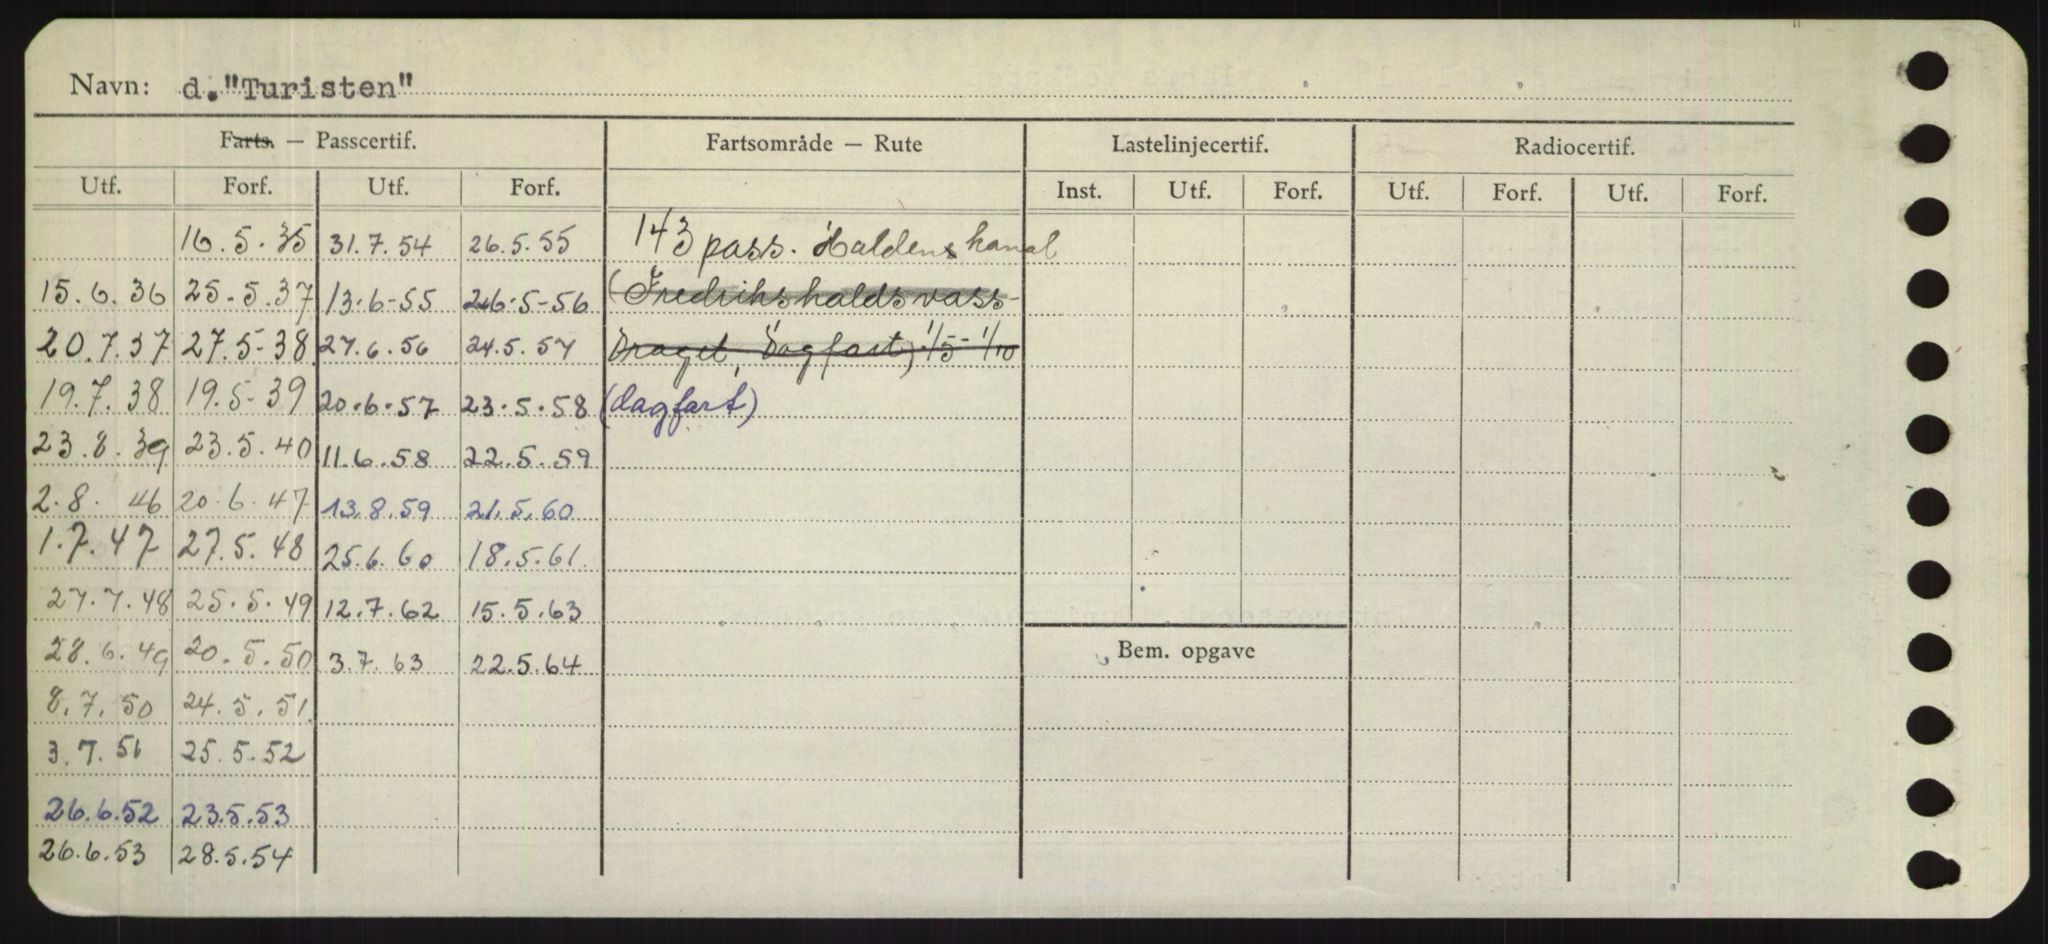 Navn: d."Turisten"
Farts. — Passcertif. Fartsområde — Rute Lastelinjecertif. Radiocertif.
Utf. Forf. Utf. Forf. Inst. Utf. Forf. Utf. Forf. Utf. Forf.
16.5.35 31.7.54 26.5.55 143 pass. Haldens kanal
15.6.36 25.5.37 13.6-55 26.5-56 (Fredrikshaldsvass-
20.7.37 27.5-38 27.6.56 24.5.57 Draget, Dagfart) 1/5-1/10
19.7.38 19.5-39 20.6.57 23.5.58 (dagfart)
23.8.39 23.5.40 11.6.58 22.5.59
2.8. 46 20.6.47 13.8.59 21.5.60
1.7.47 27.5.48 25.6.60 18.5.61.
27.7.48 25.5.49 12.7.62 15.5.63
28.6.49 20.5.50 3.7.63 22.5.64 Bem. opgave
8.7.50 24.5.51
3.7.51 25.5.52
26.6.52 23.5.53
26.6.53 28.5.54